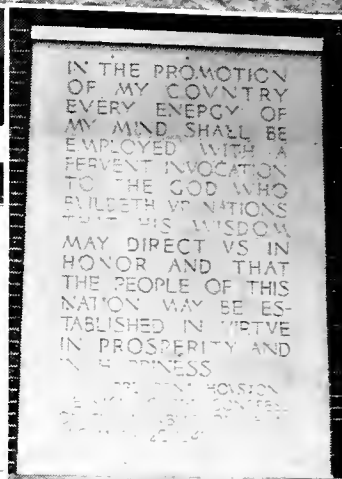 IN THE PROMOTION
OF MY COVNTRY
EVERY ENERGY OF
MY MIND SHALL BE
EMPLOYED WITH A
FERVENT INVOCATION
TO THE GOD WHO
BVILDETH VP NATIONS
THAT HIS WISDOM
MAY DIRECT VS IN
HONOR AND THAT
THE PEOPLE OF THIS
NATION MAY BE ES-
TABLISHED IN VIRTVE
IN PROSPERITY AND
IN HAPPINESS
PRESIDENT HOVSTON